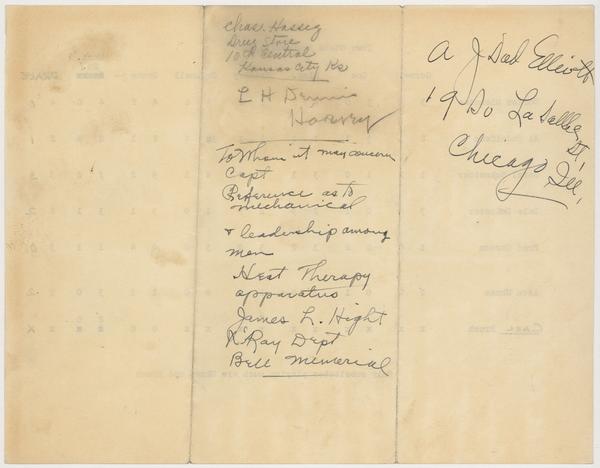 Chas. Hassig
Drug Store
10th Central
Kansas City Ks
L H Dennis
Harvey
To Whom it may concern
Capt
Reference as to
mechanical
& leadership among
men
Heat Therapy
apparatus
James L. Hight
X Ray Dept
Bell Memorial
A J "Dad" Elliott
19 So La Salle St,
Chicago, Ill,